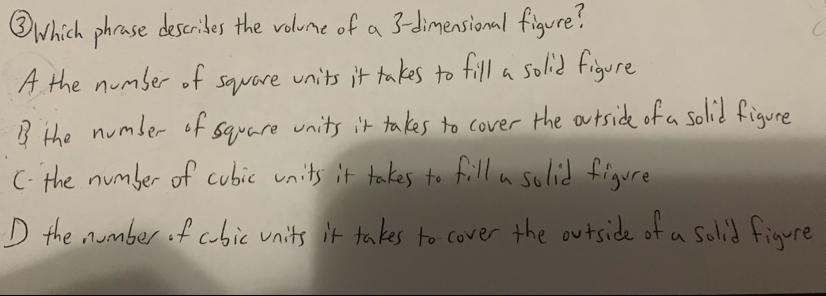 ③ Which phrase describes the volume of a 3-dimensional figure?
A the number of square units it takes to fill a solid figure
B the number of square units it takes to cover the outside of a solid figure
C- the number of cubic units it takes to fill a solid figure
D the number of cubic units it takes to cover the outside of a solid figure